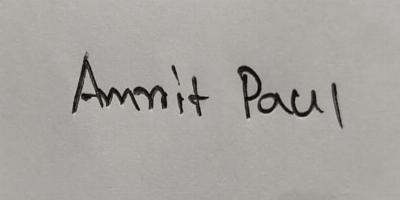 Amnit Paul